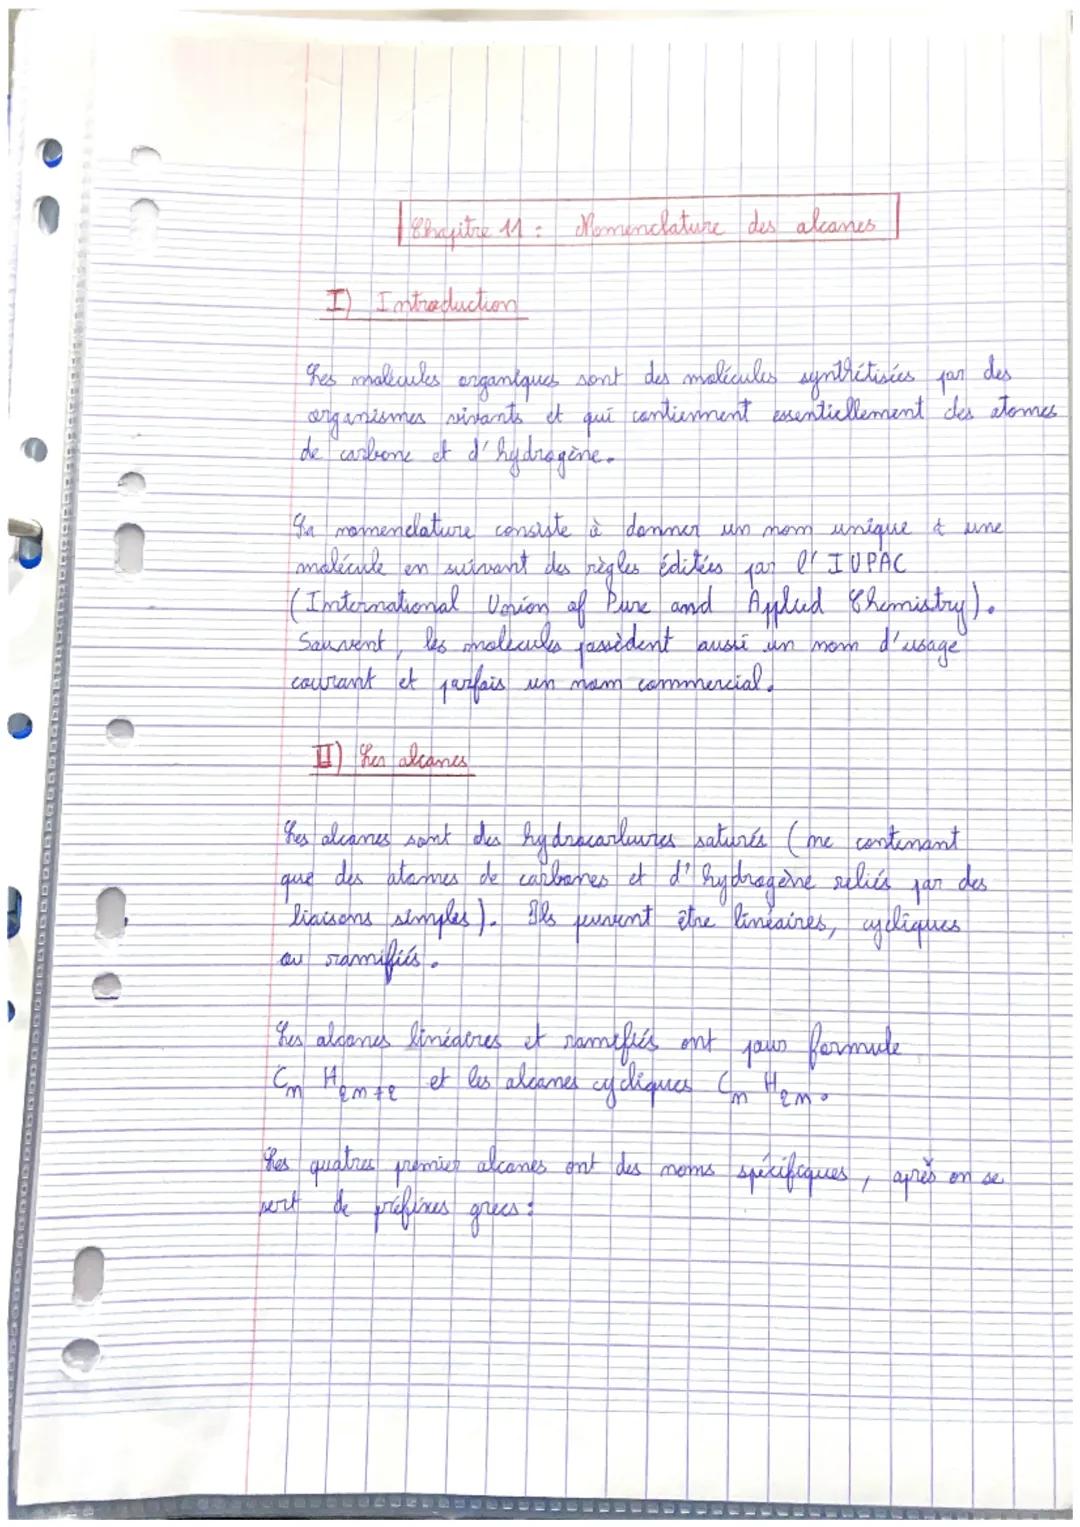 Chapitre 11 : Nomenclature des alcanes
I) Introduction
Les molécules organiques sont des molécules synthétisées par des
organismes vivants et qui contiennent essentiellement des atomes
de carbone et d'hydrogène.
La nomenclature consiste à donner un nom unique à une
molécule en suivant des règles éditées par l'IUPAC
(International Union of Pure and Applied Chemistry).
Souvent, les molécules possèdent aussi un nom d'usage
courant et parfois un nom commercial.
II) Les alcanes
Les alcanes sont des hydrocarbures saturés (ne contenant
que des atomes de carbones et d'hydrogène reliés par des
liaisons simples). Ils peuvent être linéaires, cycliques
ou ramifiés.
Les alcanes linéaires et ramifiés ont pour formule
Cn H2n+2 et les alcanes cycliques Cn H2n.
Les quatres premier alcanes ont des noms spécifiques, après on se
sert de préfixes grecs :